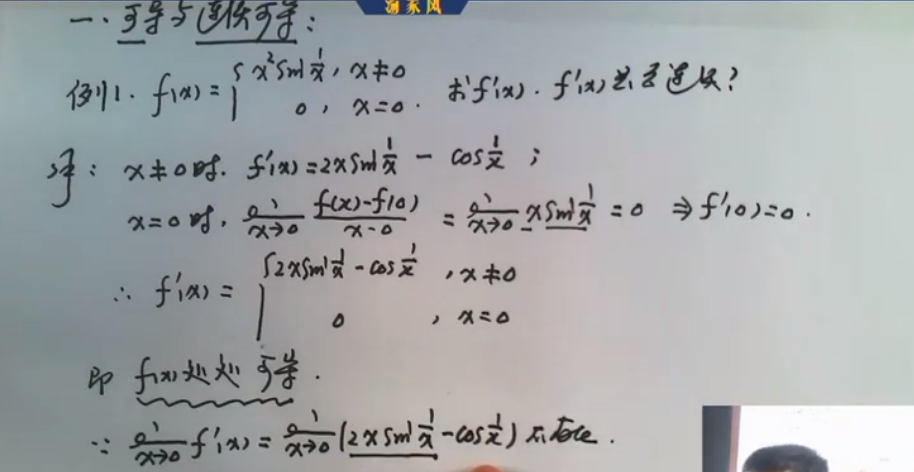 渝家风
一、可导与连续可导：
例1. f(x) = { x² sin 1/x, x ≠ 0
0, x = 0. 求f'(x). f'(x)是否连续?
解: x ≠ 0时. f'(x) = 2x sin 1/x - cos 1/x ;
x = 0时. lim x→0 f(x)-f(0) / x-0 = lim x→0 x sin 1/x = 0 ⇒ f'(0) = 0.
∴ f'(x) = { 2x sin 1/x - cos 1/x , x ≠ 0
0 , x = 0
即 f(x)处处可导.
∵ lim x→0 f'(x) = lim x→0 (2x sin 1/x - cos 1/x) 不存在.